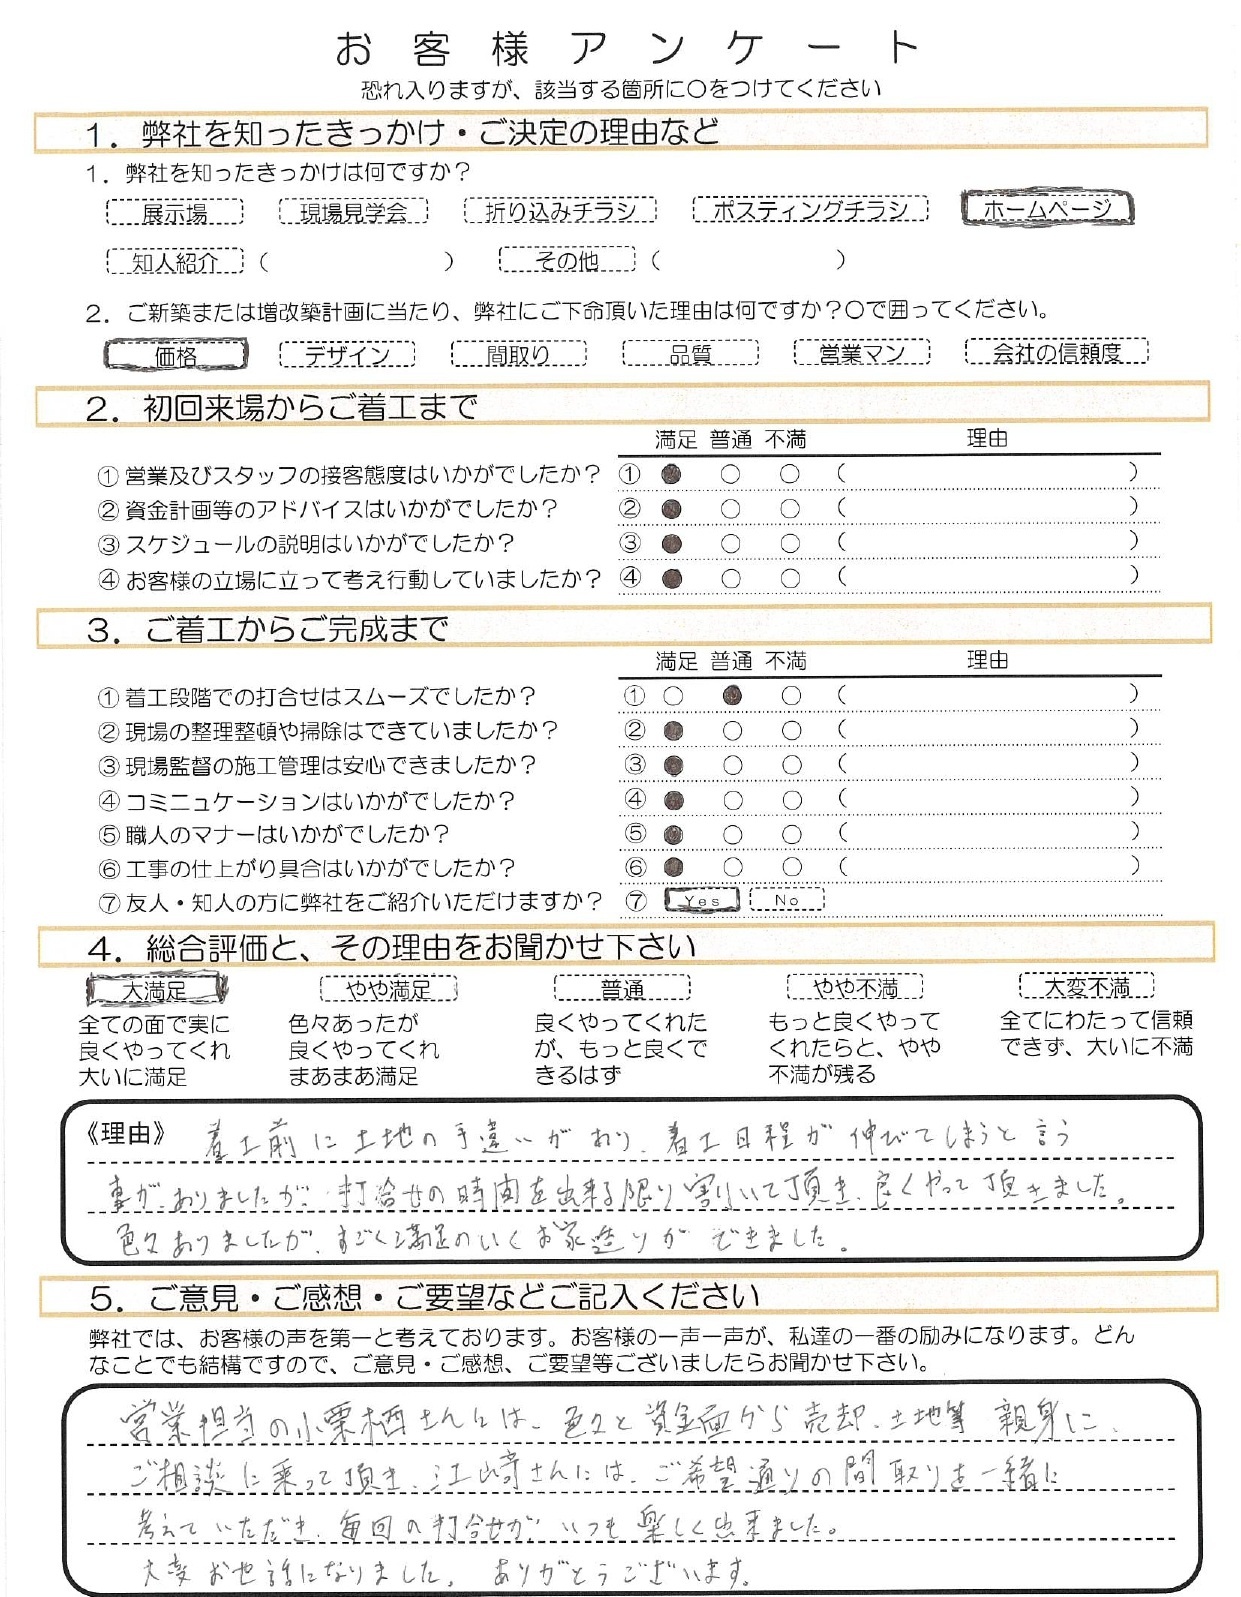 お客様アンケート
恐れ入りますが、該当する箇所に〇をつけてください
1．弊社を知ったきっかけ・ご決定の理由など
1．弊社を知ったきっかけは何ですか？
展示場 現場見学会 折り込みチラシ ポスティングチラシ ホームページ
知人紹介 （ ） その他 （ ）
2．ご新築または増改築計画に当たり、弊社にご下命頂いた理由は何ですか？〇で囲ってください。
価格 デザイン 間取り 品質 営業マン 会社の信頼度
2．初回来場からご着工まで
満足 普通 不満 理由
① 営業及びスタッフの接客態度はいかがでしたか？ ① ● ○ ○ （ ）
② 資金計画等のアドバイスはいかがでしたか？ ② ● ○ ○ （ ）
③ スケジュールの説明はいかがでしたか？ ③ ● ○ ○ （ ）
④ お客様の立場に立って考え行動していましたか？ ④ ● ○ ○ （ ）
3．ご着工からご完成まで
満足 普通 不満 理由
① 着工段階での打合せはスムーズでしたか？ ① ○ ● ○ （ ）
② 現場の整理整頓や掃除はできていましたか？ ② ● ○ ○ （ ）
③ 現場監督の施工管理は安心できましたか？ ③ ● ○ ○ （ ）
④ コミニュケーションはいかがでしたか？ ④ ● ○ ○ （ ）
⑤ 職人のマナーはいかがでしたか？ ⑤ ● ○ ○ （ ）
⑥ 工事の仕上がり具合はいかがでしたか？ ⑥ ● ○ ○ （ ）
⑦ 友人・知人の方に弊社をご紹介いただけますか？ ⑦ Yes No
4．総合評価と、その理由をお聞かせ下さい
大満足 やや満足 普通 やや不満 大変不満
全ての面で実に 色々あったが 良くやってくれた もっと良くやって 全てにわたって信頼
良くやってくれ 良くやってくれ が、もっと良くで くれたらと、やや できず、大いに不満
大いに満足 まあまあ満足 きるはず 不満が残る
《理由》 着工前に土地の手違いがあり、着工日程が伸びてしまうと言う
事が、ありましたが、打合せの時間を出来る限り割いて頂き、良くやって頂きました。
色々ありましたが、すごく満足のいくお家造りができました。
5．ご意見・ご感想・ご要望などご記入ください
弊社では、お客様の声を第一と考えております。お客様の一声一声が、私達の一番の励みになります。どん
なことでも結構ですので、ご意見・ご感想、ご要望等ございましたらお聞かせ下さい。
営業担当の小栗栖さんには、色々と資金面から売却、土地等 親身に、
ご相談に乗って頂き、江崎さんには、ご希望通りの間取りを一緒に
考えていただき、毎回の打合せが、いつも楽しく出来ました。
大変お世話になりました。 ありがとうございます。